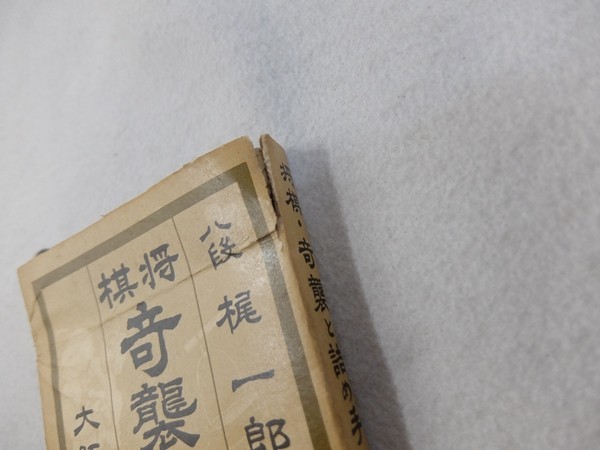 八段 梶一郎
将棋
奇襲
大
将棋・奇襲と詰め手